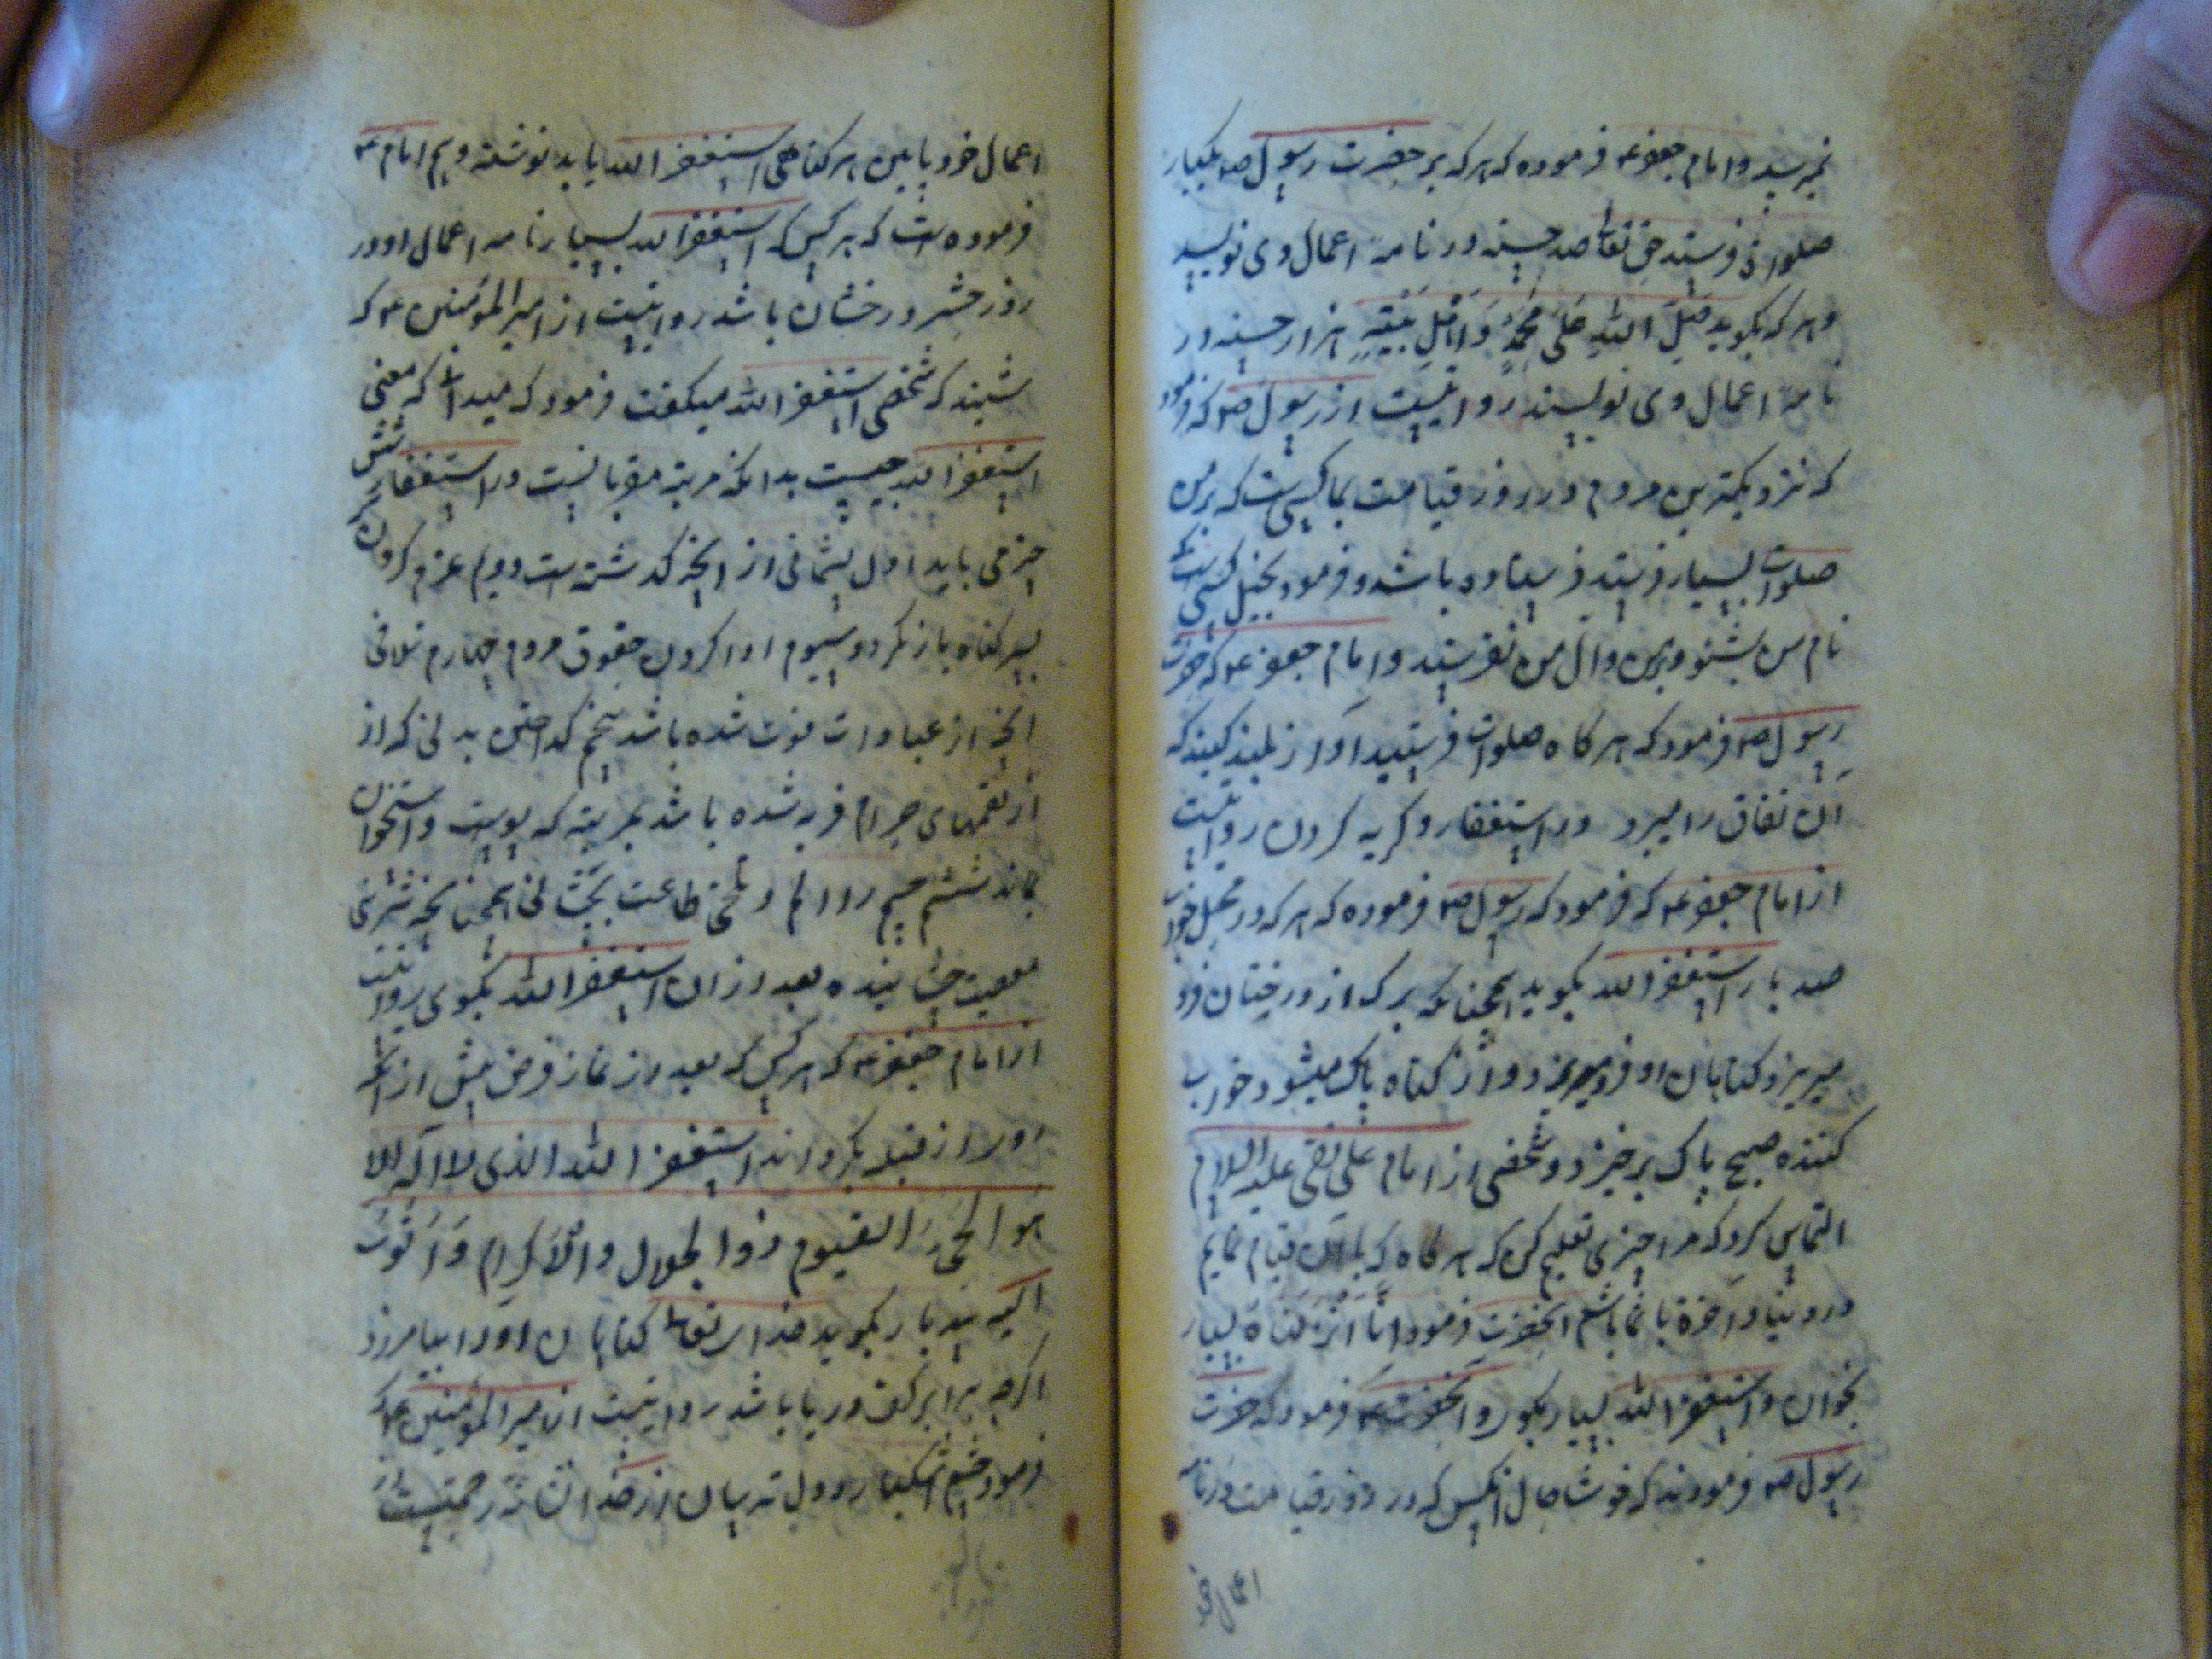 نمیرسید و امام جعفر ع فرموده که هر که بر حضرت رسول ص یکبار
صلوات فرستد حق تعالی صد حسنه در نامه اعمال وی نویسد
و هر که بگوید صَلَّی اللهُ عَلَی مُحَمَّدٍ وَ اَهْلِ بَیْتِهِ هزار حسنه در
نامه اعمال وی نویسند روایتست از رسول ص که فرمود
که نزدیکترین مردم در روز قیامت بما کسیست که بر من
صلوات بسیار فرستاده باشد و فرمود بخیل کسیست که
نام من بشنود و بر من و آل من نفرستید و امام جعفر ع که حضرت
رسول ص فرمود که هر کاه صلوات فرستید آواز بلند کنید که
آن نفاق را میبرد در استغفار و کریه کردن روایتست
از امام جعفر ع که فرمود که رسول ص فرموده که هر که در محل خواب
صد بار استغفر الله بگوید همچنانکه برک از درختان فرو
میریزد کناهان او فرو میریزد و از کناه پاک میشود و خواب
کننده صبح پاک برخیزد و شخصی از امام علی نقی علیه السلام
التماس کرد که مرا چیزی تعلیم کن که هر کاه که بآن قیام نمایم
در دنیا و آخرة با شما باشم آنحضرت فرمود اِنّا اَنْزَلْناهُ بسیار
بخوان و استغفر الله بسیار بکوی و آنحضرت ع فرمود که حضرت
رسول ص فرمودند که خوشا حال آنکس که در روز قیامت در نامه
اعمال خود
اعمال خود پایین هر کناهی استغفر الله یابد نوشته و هم امام ع
فرموده است که هر کس که استغفر الله بسیار نامه اعمال او در
روز حشر درخشان باشد روایتست از امیر المؤمنین ع که
شنیند که شخصی استغفر الله میکفت فرمود که میدانی که معنی
استغفر الله چیست بدانکه مرتبه مقربانست و در استغفار شش
چیز می باید اول پشیمانی از آنچه کذشته است دویم عزم کردن که
بسر کناه باز نکردد سیوم ادا کردن حقوق مردم چهارم تلافی
آنچه از عبادات فوت شده باشد پنجم کداختن بدنی که از
از لقمهای حرام فربه شده باشد بمرتبه که پوست و استخوان
بماند ششم جسم را الم و تلخی طاعت بچشانی همچنانچه شیرینی
معصیت چشانیده بعد از ان استغفر الله بگوی روایتست
از امام جعفر ع که هر کس که بعد از نماز فرض پیش از آنکه
رو از قبله بکرداند استغفر الله الذی لا اله الا
هو الحی القیوم ذوالجلال والاکرام وَ اَتُوبُ
الیه سه بار بکوید خدای تعالی کناهان او را بیامرزد
اکرچه برابر کف دریا باشد روایتست از امیر المؤمنین ع که
فرمود چشم اشکبار و دل ترسان از خدا نشانه رحمتیست